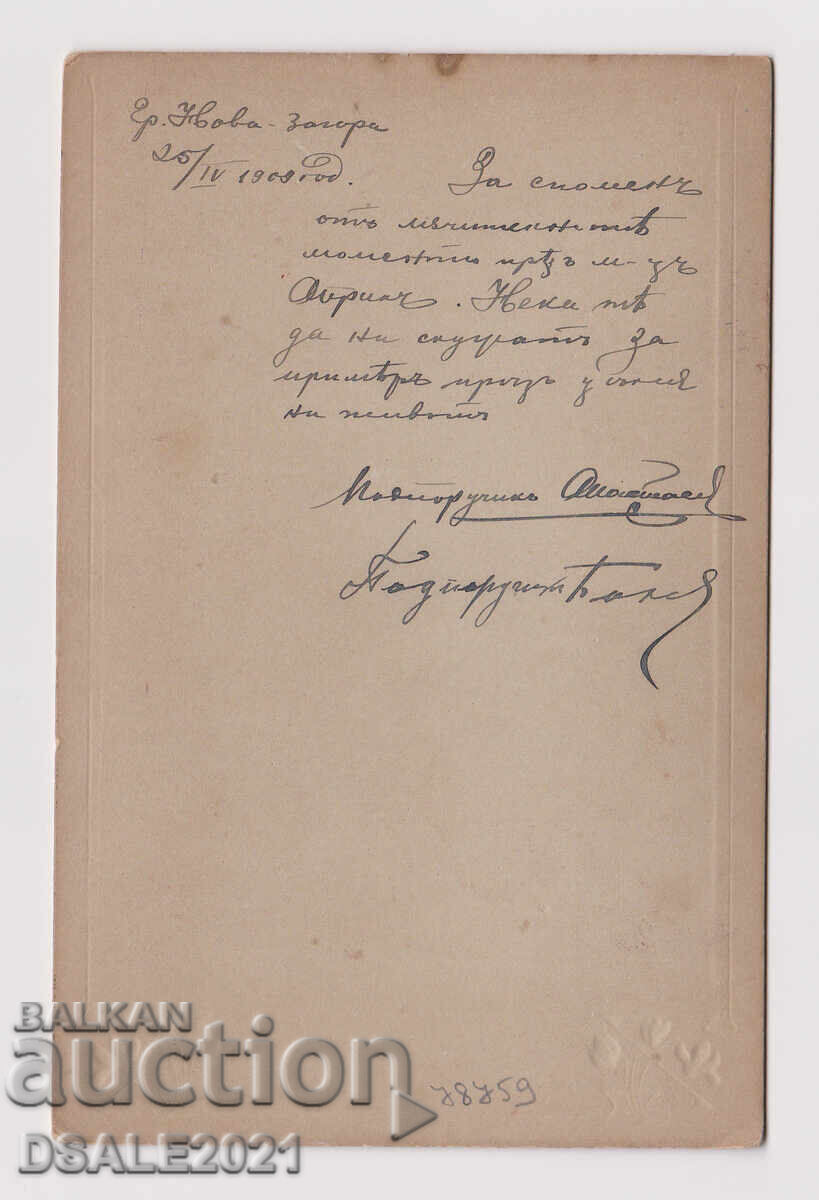 гр. Нова-Загора
25/IV 1909 год.
За споменъ
отъ мѫчителнитѣ
моменти прѣзъ м-цъ
Априлъ. Нека тѣ
да ни служатъ за
примѣръ прѣзъ
на животъ
Подпоручикъ
Подпоручикъ
78759
BALKAN
auction
DSALE2021